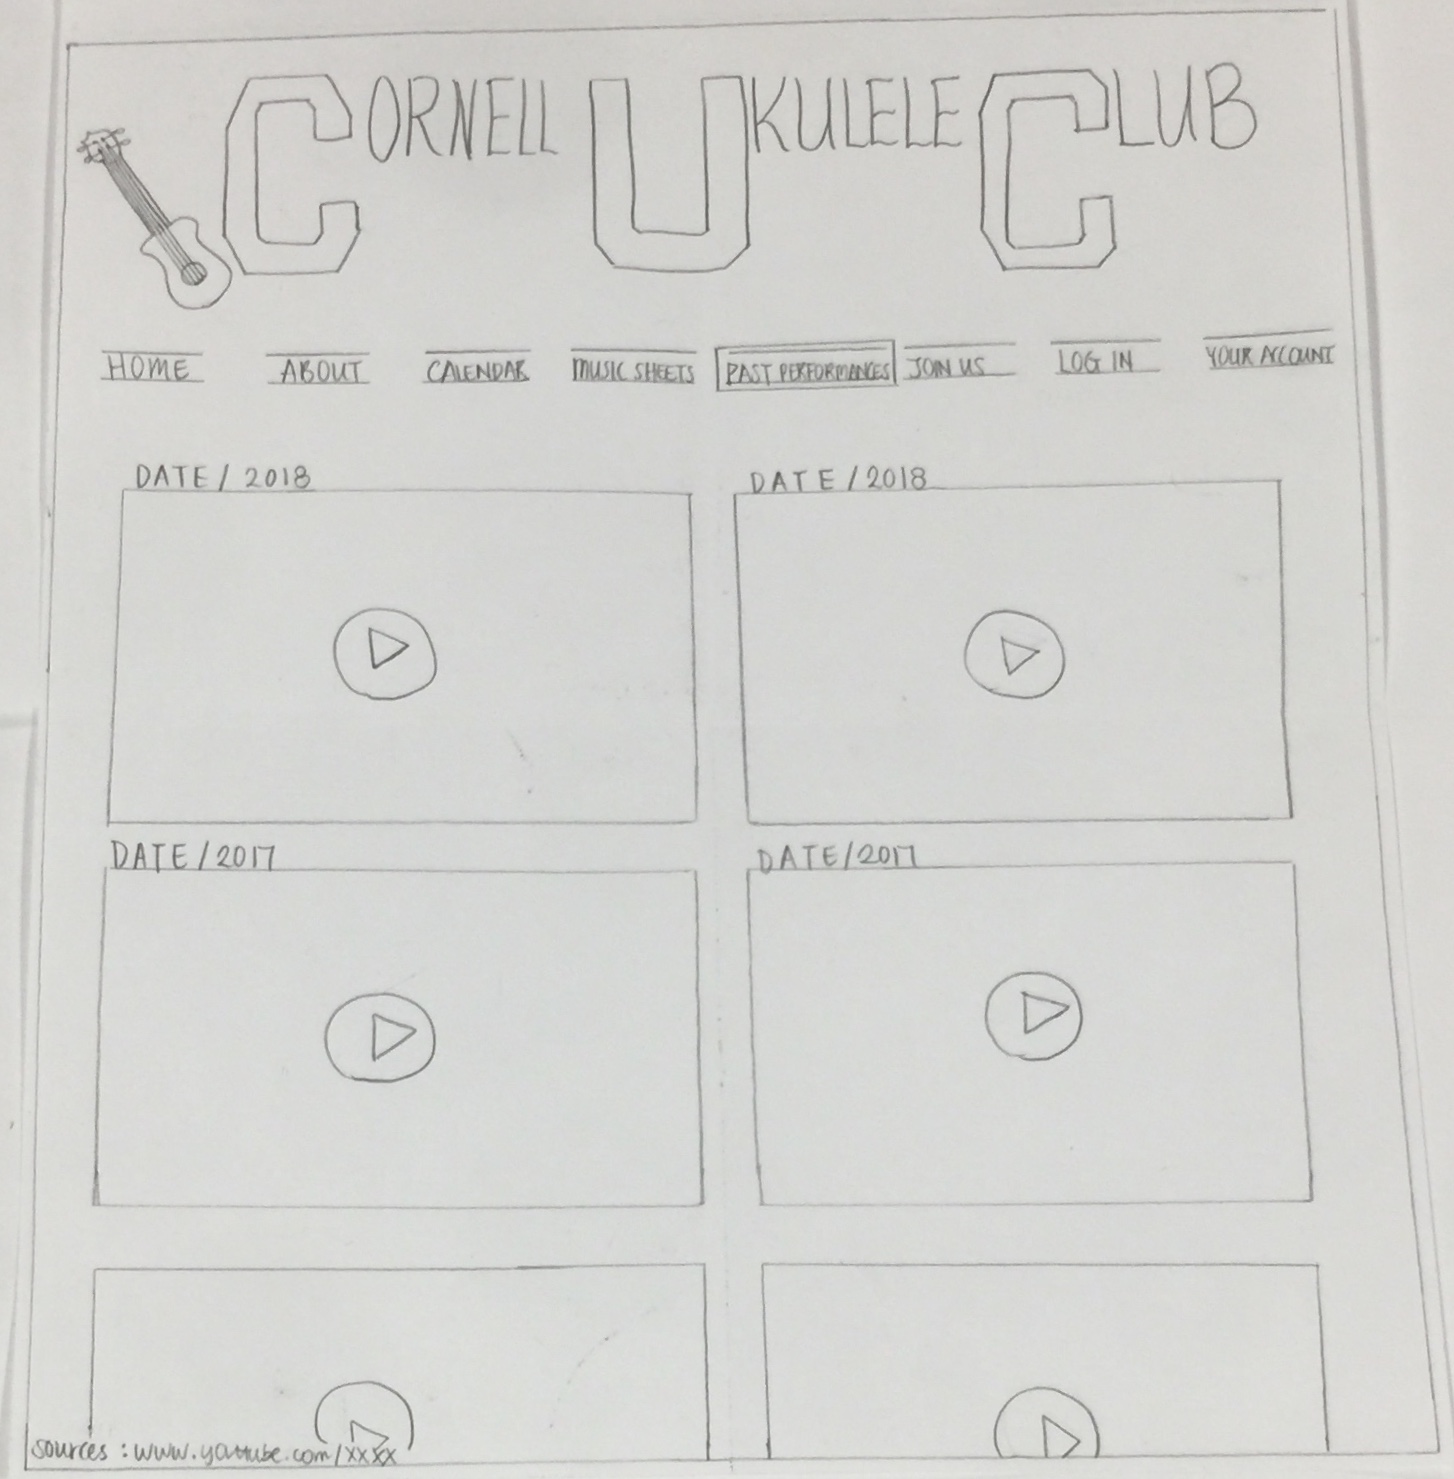 CORNELL UKULELE CLUB
HOME ABOUT CALENDAR MUSIC SHEETS PAST PERFORMANCES JOIN US LOG IN YOUR ACCOUNT
DATE / 2018 DATE / 2018
DATE / 2017 DATE / 2017
sources : www.youtube.com/xxxx